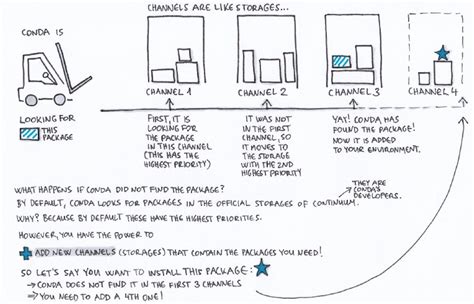 CHANNELS ARE LIKE STORAGES...
CONDA IS
LOOKING FOR
THIS
PACKAGE
CHANNEL 1
CHANNEL 2
CHANNEL 3
CHANNEL 4
FIRST, IT IS
LOOKING FOR
THE PACKAGE
IN THIS CHANNEL
(THIS HAS THE
HIGHEST PRIORITY)
IT WAS NOT
IN THE FIRST
CHANNEL, SO
IT MOVES TO
THE STORAGE
WITH THE 2ND
HIGHEST PRIORITY
YAY! CONDA HAS
FOUND THE PACKAGE!
NOW IT IS ADDED
TO YOUR ENVIRONMENT.
WHAT HAPPENS IF CONDA DID NOT FIND THE PACKAGE?
BY DEFAULT, CONDA LOOKS FOR PACKAGES IN THE OFFICIAL STORAGES OF CONTINUUM.
THEY ARE
CONDA'S
DEVELOPERS.
WHY? BECAUSE BY DEFAULT THESE HAVE THE HIGHEST PRIORITIES.
HOWEVER, YOU HAVE THE POWER TO
ADD NEW CHANNELS (STORAGES) THAT CONTAIN THE PACKAGES YOU NEED!
SO LET'S SAY YOU WANT TO INSTALL THIS PACKAGE:
→ CONDA DOES NOT FIND IT IN THE FIRST 3 CHANNELS
→ YOU NEED TO ADD A 4TH ONE!